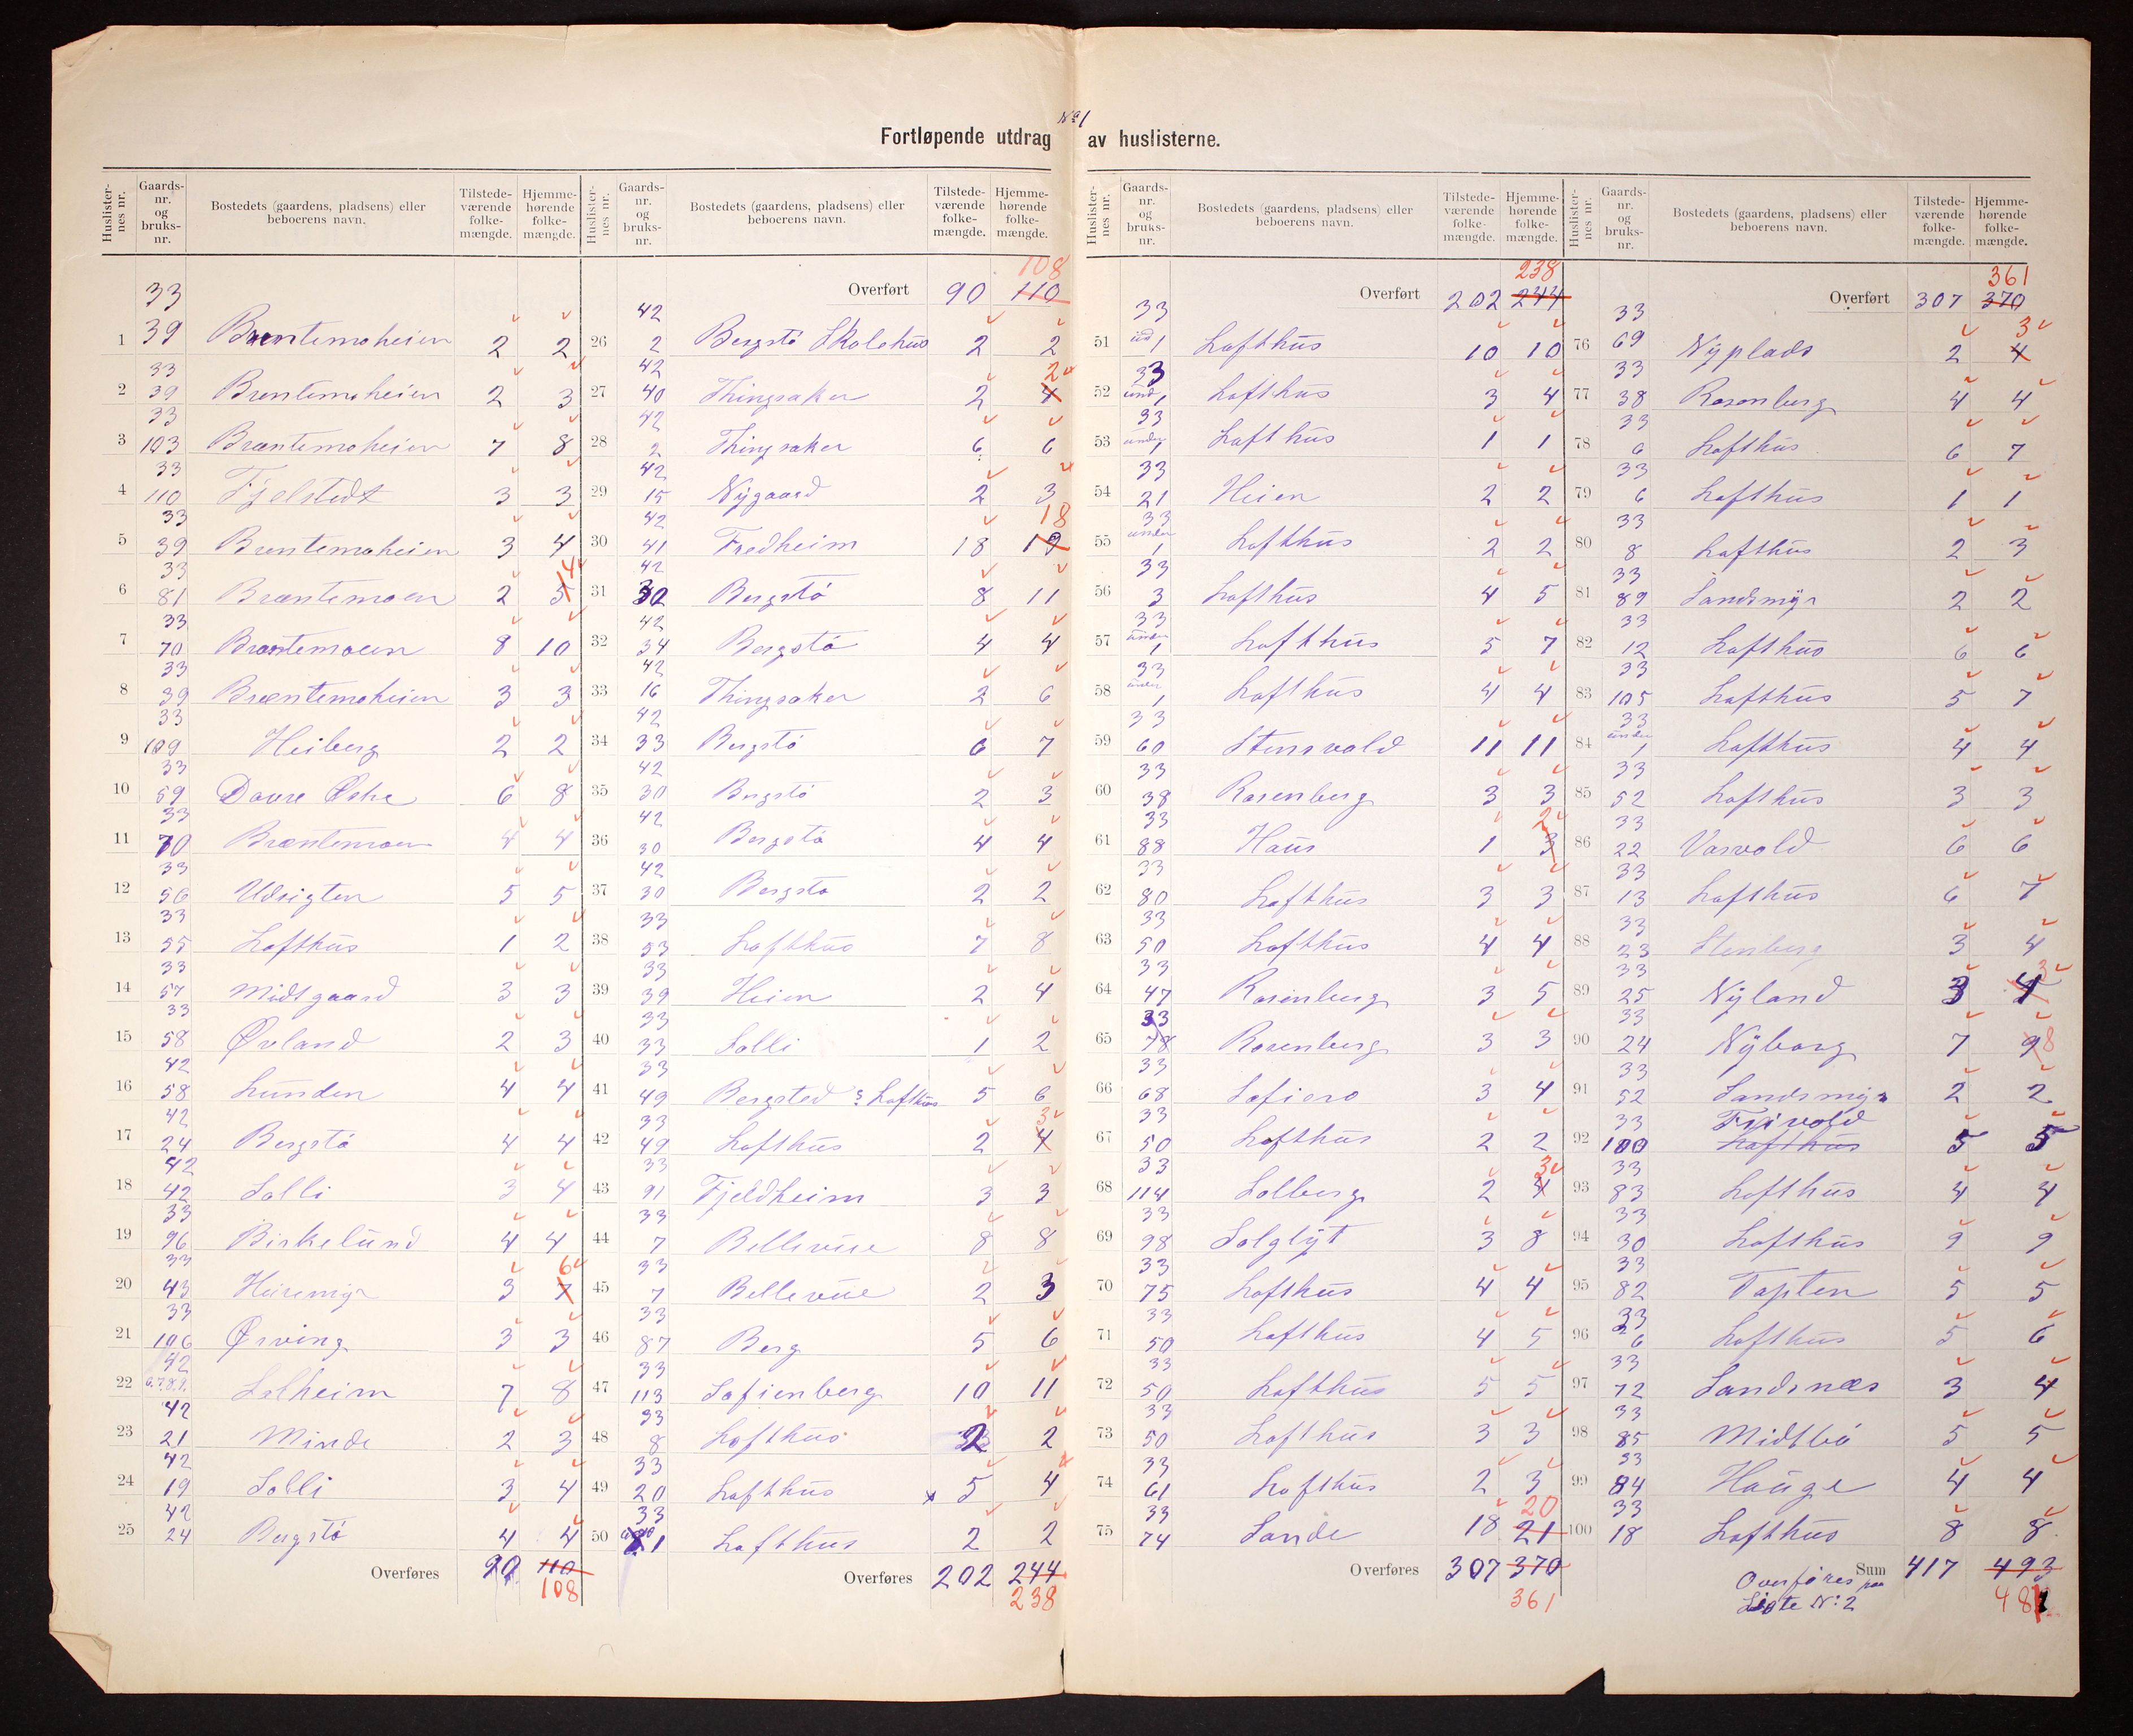 No 1
Fortløpende utdrag av huslisterne.
Huslister-nes nr. Gaards-nr. og bruks-nr. Bostedets (gaardens, pladsens) eller beboerens navn. Tilstede-værende folke-mængde. Hjemme-hørende folke-mængde.
1 33 39 Bræntemoheien 2 2
2 33 39 Brentemoheien 2 3
3 33 103 Bræntemoheien 7 8
4 33 110 Fjelstedt 3 3
5 33 39 Brentemoheien 3 4
6 33 81 Bræntemoen 2 5 4
7 33 70 Bræntemoen 8 10
8 33 39 Bræntemoheien 3 3
9 33 109 Heiberg 2 2
10 33 59 Øske 6 8
11 33 70 Bræntemoen 4 4
12 33 56 Udsigten 5 5
13 33 55 Lofthus 1 2
14 33 57 Midtgaard 3 3
15 33 58 Øvland 2 3
16 42 58 Lunden 4 4
17 42 24 Bergstö 4 4
18 42 42 Solli 3 4
19 33 96 Birkelund 4 4
20 33 43 Heiremyr 3 7 6
21 33 106 Ørving 3 3
22 42 6.7.8.9. Solheim 7 8
23 42 21 Minde 2 3
24 42 19 Solli 3 4
25 42 24 Bergstö 4 4
Overføres 90 110
108
Huslister-nes nr. Gaards-nr. og bruks-nr. Bostedets (gaardens, pladsens) eller beboerens navn. Tilstede-værende folke-mængde. Hjemme-hørende folke-mængde.
108
Overført 90 110
26 42 2 Bergstö Skolehus 2 2
27 42 40 Thingsaker 2 4 2
28 42 2 Thingsaker 6 6
29 42 15 Nygaard 2 3
30 42 41 Fredheim 18 19 18
31 42 30 Bergstö 8 11
32 42 34 Bergstö 4 4
33 42 16 Thingsaker 2 6
34 42 33 Bergstö 6 7
35 42 30 Bergstö 2 3
36 42 30 Bergstö 4 4
37 42 30 Bergstö 2 2
38 33 53 Lofthus 7 8
39 33 39 Heien 2 4
40 33 33 Solli 1 2
41 33 49 Bergsted s Lofthus 5 6
42 33 49 Lofthus 2 4 3
43 33 91 Fjeldheim 3 3
44 33 7 Bellevue 8 8
45 33 7 Bellevue 2 3
46 33 87 Berg 5 6
47 33 113 Sofienberg 10 11
48 33 8 Lofthus 2 2
49 33 20 Lofthus x 5 4
50 33 1 Lofthus 2 2
Overføres 202 244
238
Huslister-nes nr. Gaards-nr. og bruks-nr. Bostedets (gaardens, pladsens) eller beboerens navn. Tilstede-værende folke-mængde. Hjemme-hørende folke-mængde.
238
Overført 202 244
51 33 1 Lofthus 10 10
52 33 und 1 Lofthus 3 4
53 33 under 1 Lofthus 1 1
54 33 21 Heien 2 2
55 33 under 1 Lofthus 2 2
56 33 3 Lofthus 4 5
57 33 under 1 Lofthus 5 7
58 33 under 1 Lofthus 4 4
59 33 60 Stensvold 11 11
60 33 38 Rosenberg 3 3
61 33 88 Haus 1 3 2
62 33 80 Lofthus 3 3
63 33 50 Lofthus 4 4
64 33 47 Rosenberg 3 5
65 33 78 Rosenberg 3 3
66 33 68 Sofiero 3 4
67 33 50 Lofthus 2 2
68 33 114 Solberg 2 4 3
69 33 98 Solglyt 3 8
70 33 75 Lofthus 4 4
71 33 50 Lofthus 4 5
72 33 50 Lofthus 5 5
73 33 50 Lofthus 3 3
74 33 61 Lofthus 2 3
75 33 74 Sande 18 21 20
Overføres 307 370
361
Huslister-nes nr. Gaards-nr. og bruks-nr. Bostedets (gaardens, pladsens) eller beboerens navn. Tilstede-værende folke-mængde. Hjemme-hørende folke-mængde.
361
Overført 307 370
76 33 69 Nyplads 2 4 3
77 33 38 Rosenberg 4 4
78 33 6 Lofthus 6 7
79 33 6 Lofthus 1 1
80 33 8 Lofthus 2 3
81 33 89 Sandsmyr 2 2
82 33 12 Lofthus 6 6
83 33 105 Lofthus 5 7
84 33 under 1 Lofthus 4 4
85 33 52 Lofthus 3 3
86 33 22 Vasvold 6 6
87 33 13 Lofthus 6 7
88 33 23 Stenberg 3 4
89 33 25 Nyland 3 4 3
90 33 24 Nyborg 7 9 8
91 33 52 Sandsmyr 2 2
92 33 100 Frivold Lofthus 5 5
93 33 83 Lofthus 4 4
94 33 30 Lofthus 9 9
95 33 82 Topten 5 5
96 33 6 Lofthus 5 6
97 33 72 Sandsnæs 3 4
98 33 85 Midtbö 5 5
99 33 84 Hauge 4 4
100 33 18 Lofthus 8 8
Sum 417 493
Overføres paa
Liste No: 2 481